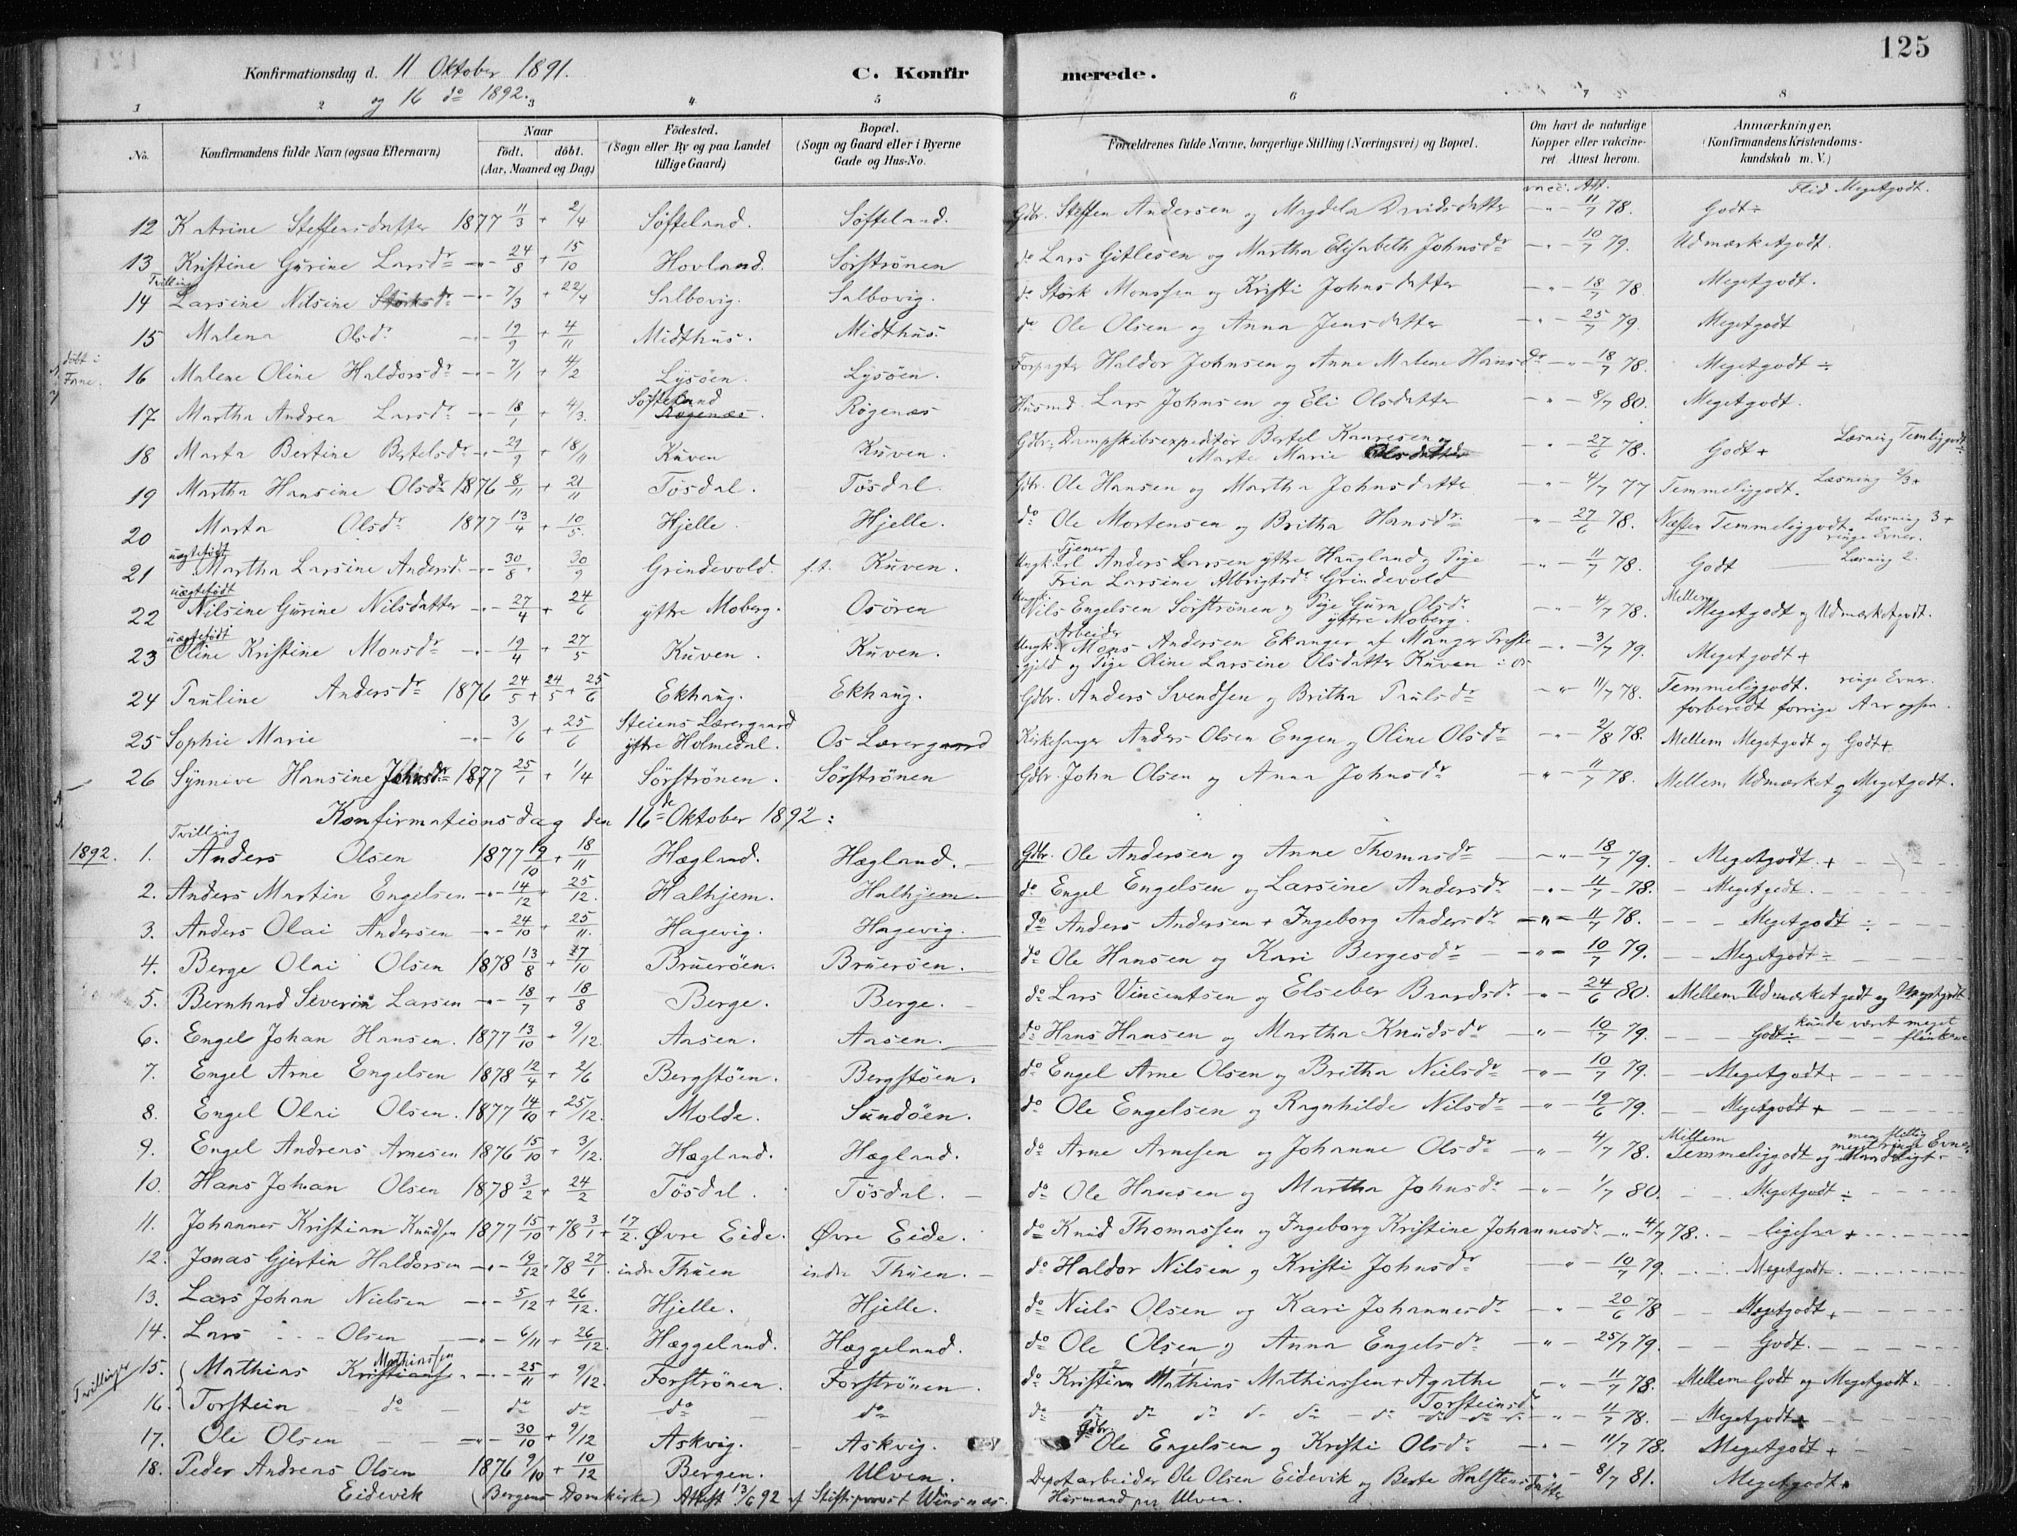 125
Konfirmationsdag d. 11 Oktober 1891.
og 16 do 1892.
C. Konfirmerede.
1 2 3 4 5 6 7 8
No.
Konfirmandens fulde Navn (ogsaa Efternavn)
Naar
födt. döbt.
(Aar, Maaned og Dag)
Födested.
(Sogn eller By og paa Landet
tillige Gaard)
Bopæl.
(Sogn og Gaard eller i Byerne
Gade og Hus-No.
Forældrenes fulde Navne, borgerlige Stilling (Næringsvei) og Bopæl.
Om havt de naturlige
Kopper eller vakcine-
ret Attest herom.
Anmærkninger.
(Konfirmandens Kristendoms-
kundskab m. V.)
vacc. Att. Flid Megetgodt.
12 Katrine Steffensdatter 1877 11/3 + 2/4 Søfteland. Søfteland. Gdbr. Steffen Andersen og Magdela Davidsdatter -"- 11/7 78. Godt÷
13 Kristine Gurine Larsdr -"- 24/8 + 15/10 Hovland. Sørstrønen do Lars Gitlesen og Martha Elisabeth Johnsdr -"- 10/7 79. Udmærketgodt.
Tvilling
14 Larsine Nilsine Størksdr -"- 7/3 + 22/4 Salbovig. Salbovig. do Størk Monssen og Kristi Johnsdatter -"- 18/7 78. Megetgodt.
15 Malena Olsdr -"- 19/9 + 4/11 Midthus. Midthus. do Ole Olsen og Anna Jensdatter -"- 25/7 79. Megetgodt
döbt i
Fane. 16 Malene Oline Haldorsdr -"- 7/1 + 4/2 Lysøen. Lysøen. Forpagter Haldor Johnsen og Anne Malene Hansdr -"- 18/7 78. Megetgodt ÷
17 Martha Andrea Larsdr -"- 18/1 + 4/3. Søfteland Røgenæs. Røgenæs Husmd. Lars Johnsen og Eli Olsdatter -"- 8/7 80. Megetgodt.
18 Marta Bertine Bertelsdr -"- 29/9 + 18/11 Kuven Kuven. Gdbr. Dampskibsexpeditør Bertel Knaresen og -"- 27/6 78. Godt + Læsning Temligodt
Marte Marie Olsdatter
19 Martha Hansine Olsdr 1876 8/11 + 21/11 Tøsdal. Tøsdal. Gdbr. Ole Hansen og Martha Johnsdatter -"- 4/7 77 Temmeliggodt. Læsning 2/3+
20 Marta Olsdr 1877 13/4 + 10/5. Hjelle. Hjelle. do Ole Mortensen og Britha Hansdr -"- 27/6 78. Næsten Temmeliggodt. Læsning 3+
ringe Evner.
uægtefödt
21 Martha Larsine Andersdr -"- 30/8 30/9 Grindevold. f.t. Kuven. Ungkarl Tjener Anders Larsen ytre Haugland og Pige -"- 11/7 78. Godt Læsning 2.
Fria Larsine Albrigtsdr Grindevold
uægtefödt
22 Nilsine Gurine Nilsdatter -"- 27/4 + 24/6 ytre Moberg. Osøren Ungk. Nils Engelsen Sørstrønen og Pige Gurn Olsdr -"- 4/7 78. Mellem Megetgodt og Udmærketgodt.
ytre Moberg.
uægtefödt
23 Oline Kristine Monsdr -"- 19/4 + 27/5 Kuven. Kuven. Ungk. Arbeider Mons Andersen Ekanger af Manger Præste -"- 3/7 79. Megetgodt +
gjeld og Pige Oline Larsine Olsdatter Kuven i Os
24 Pauline Andersdr 1876 24/5 + 24/5 + 25/6 Ekhaug. Ekhaug. Gdbr. Anders Svendsen og Britha Paulsdr -"- 11/7 78. Temmeliggodt. ringe Evner.
forberedt forrige Aar ogsaa.
25 Sophie Marie -"- 3/6 + 25/6 Steiens Lærergaard ytre Holmedal. Os Lærergaard Kirkesanger Anders Olsen Engen og Oline Olsdr -"- 2/8 78. Mellem Megetgodt og Godt+
26 Synneve Hansine Johnsdr 1877 25/1 + 1/4 Sørstrønen. Sørstrønen Gdbr. John Olsen og Anna Johnsdr -"- 11/7 78. Mellem Udmærket og Megetgodt.
Konfirmationsdag den 16de Oktober 1892:
Tvilling
1892. 1. Anders Olsen 1877 19/10 + 18/11 Hægland. Hægland. Gdbr. Ole Andersen og Anne Thomasdr -"- 18/7 79. Megetgodt. +
2. Anders Martin Engelsen -"- 14/12 + 25/12. Halhjem. Halhjem. do Engel Engelsen og Larsine Andersdr -"- 11/7 78. Megetgodt.
3. Anders Olai Andersen -"- 24/10 + 25/11. Hagevig. Hagevig. do Anders Andersen + Ingeborg Andersdr -"- 11/7 78. Megetgodt ÷
4. Berge Olai Olsen 1878 13/8 + 17/10 Bruerøen. Bruerøen. do Ole Hansen og Kari Bergesdr -"- 10/7 79. Megetgodt ÷
5. Bernhard Severin Larsen -"- 18/7 + 18/8 Berge. Berge. do Lars Vincentsen og Elseber Baardsdr -"- 24/6 80. Mellem Udmærketgodt og Megetgodt
6. Engel Johan Hansen. 1877 13/10 + 9/12. Aasen. Aasen. do Hans Hansen og Martha Knudsdr -"- 10/7 79. Godt÷ kunde været meget
flinkere
7. Engel Arne Engelsen 1878 12/4 + 2/6 Bergstøen. Bergstøen. do Engel Arne Olsen og Britha Nielsdr -"- 10/7 79. Megetgodt.
8. Engel Olai Olsen. 1877 14/10 + 25/12. Molde. Sundøen. do Ole Engelsen og Ragnhilde Nilsdr -"- 19/6 79. Megetgodt +
9. Engel Andreas Arnesen 1876 15/10 + 3/12. Hægland. Hægland. do Arne Arnesen og Johanne Olsdr -"- 4/7 78. Mellem Temmeliggodt og Maadeligt. men flittig
meget ringe Evner
10. Hans Johan Olsen 1878 3/2 + 24/2 Tøsdal. Tøsdal. do Ole Hansen og Martha Johnsdr -"- 1/7 80. Megetgodt ÷
11. Johannes Kristian Knudsen 1877 15/10 + 78 3/1 + 17/2. Øvre Eide. Øvre Eide. do Knud Thomassen og Ingeborg Kristine Johannesdr -"- 4/7 78. ligesaa +
12. Jonas Gjertin Haldorsen -"- 19/12 + 78 27/1. indre Thuen indre Thuen. do Haldor Nilsen og Kristi Johnsdr -"- 10/7 79. Megetgodt.
13. Lars Johan Nielsen -"- 5/12 + 26/12. Hjelle. Hjelle. do Niels Olsen og Kari Johannesdr -"- 20/6 78 Megetgodt +
14. Lars Olsen -"- 6/11 + 26/12. Hæggeland. Hæggeland. do Ole Olsen og Anna Engelsdr -"- 25/7 79. Godt.
Tvillinger 15. Mathias Kristians. Mathiassen -"- 25/11 + 9/12. Forstrønen. Forstrønen. do Kristian Mathias Mathiassen + Agathe -"- 11/7 78. Mellem Godt og Megetgodt.
Torsteinsdr
16. Torstein do do do do do do do do do do do do -"- 11/7 78. Megetgodt
17. Ole Olsen -"- 30/10 + 9/12 Askvig. Askvig. Gdbr. Ole Engelsen og Kristi Olsdr -"- 11/7 78. Megetgodt +
18. Peder Andreas Olsen 1876 9/10 + 10/12 Bergen. Ulven. Depotarbeider Ole Olsen Eidevik og Berte Halstensdatter - 8/7 81. Megetgodt.
Eidevik (Bergens Domkirke) Attest 13/6 92 af Stiftsprovst Winsnæs. Husmand paa Ulven.